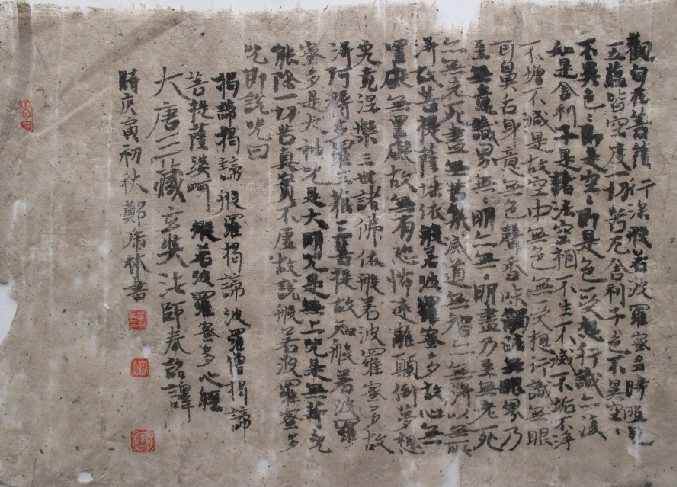 觀自在菩薩行深般若波羅蜜多時照見
五蘊皆空度一切苦厄舍利子色不異空〻
不異色〻即是空〻即是色受想行識亦復
如是舍利子是諸法空相不生不滅不垢不淨
不增不減是故空中無色無受想行識無眼
耳鼻舌身意無色聲香味觸法無眼界乃
至無意識界無〻明亦無〻明盡乃至無老死
亦無老死盡無苦集滅道無智亦無得以無所
得故菩提薩埵依般若波羅蜜多故心無
罣礙無罣礙故無有恐怖遠離顛倒夢想
究竟涅槃三世諸佛依般若波羅蜜多故
得阿耨多羅三藐三菩提故知般若波羅
蜜多是大神咒是大明咒是無上咒是無等咒
能除一切苦真實不虛故說般若波羅蜜多
咒即說咒曰
揭諦揭諦般羅揭諦波羅僧揭諦
菩提薩婆訶 般若波羅蜜多心經
大唐三藏玄奘法師奉詔譯
時庚寅初秋鄭林書